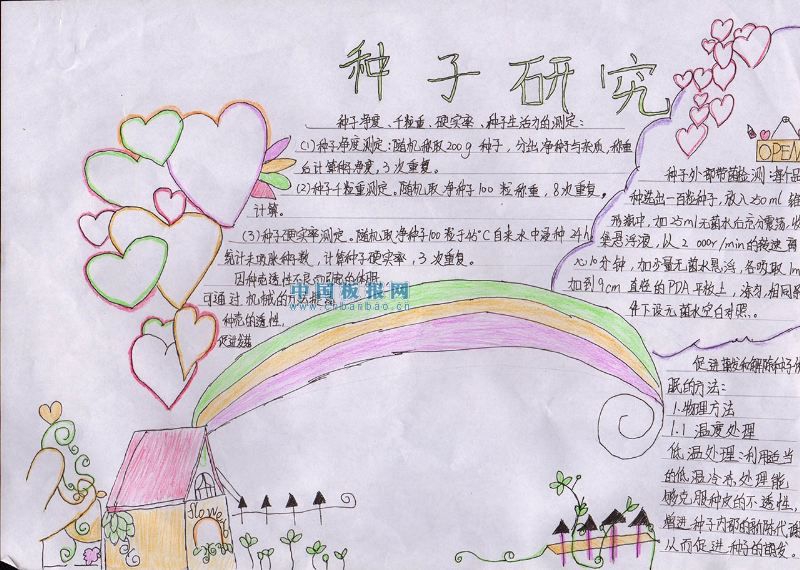 种子研究
种子净度、千粒重、硬实率、种子生活力的测定:
(1)种子净度测定:随机称取200g种子,分出净种子与杂质,称重
后计算种子净度,3次重复。
(2)种子千粒重测定。随机取净种子100粒称重,8次重复。
计算。
(3)种子硬实率测定。随机取净种子100粒于45°C自来水中浸种24h
统计未吸胀种子数,计算种子硬实率,3次重复。
因种壳透性不良而引起的休眠
可通过机械的方法提高
种壳的透性,
促进发芽
中国板报网
www.chbanbao.cn
OPEN
种子外部带菌检测:每个品
种选出一百粒种子,放入250ml锥
形瓶中,加25ml无菌水白充分震荡,收
集悬浮液,以2000r/min的转速离
心10分钟,加少量无菌水悬浮,各吸取1m
加到9cm直径的PDA平板上,涂匀,相同条
件下设无菌水空白对照。
促进萌发和解除种子休
眠的方法:
1.物理方法
1.1温度处理
低温处理:利用适当
的低温冷冻处理能
够克服种皮的不透性,
增进种子内部的新陈代谢
从而促进种子的萌发。
flower